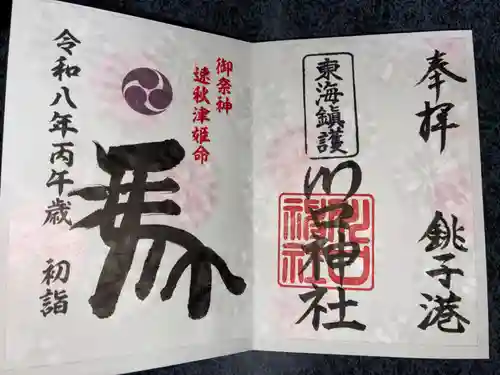 奉拝
銚子港
東海鎮護
川口神社
川口神社
御祭神
速秋津姫命
馬
令和八年丙午歳 初詣